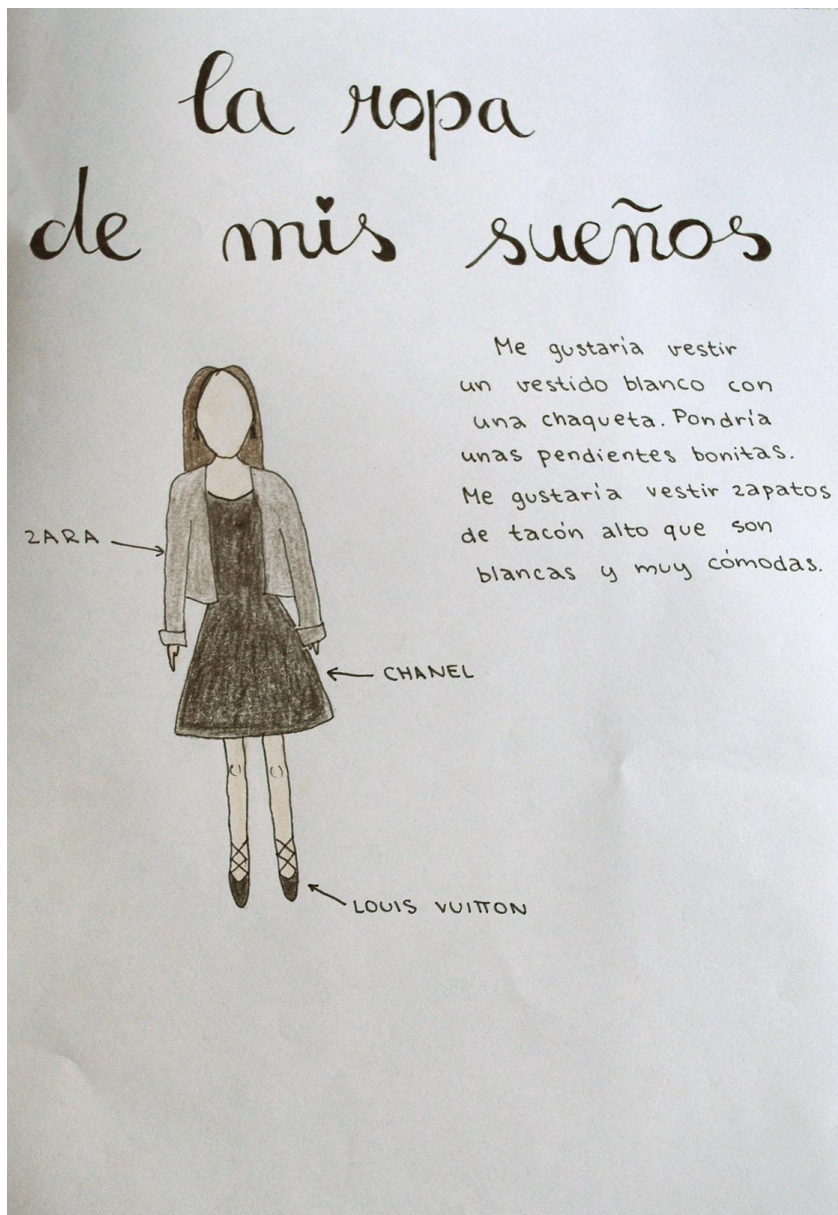 la ropa
de mis sueños
Me gustaría vestir
un vestido blanco con
una chaqueta. Pondría
unas pendientes bonitas.
Me gustaría vestir zapatos
de tacón alto que son
blancas y muy cómodas.
ZARA
CHANEL
LOUIS VUITTON